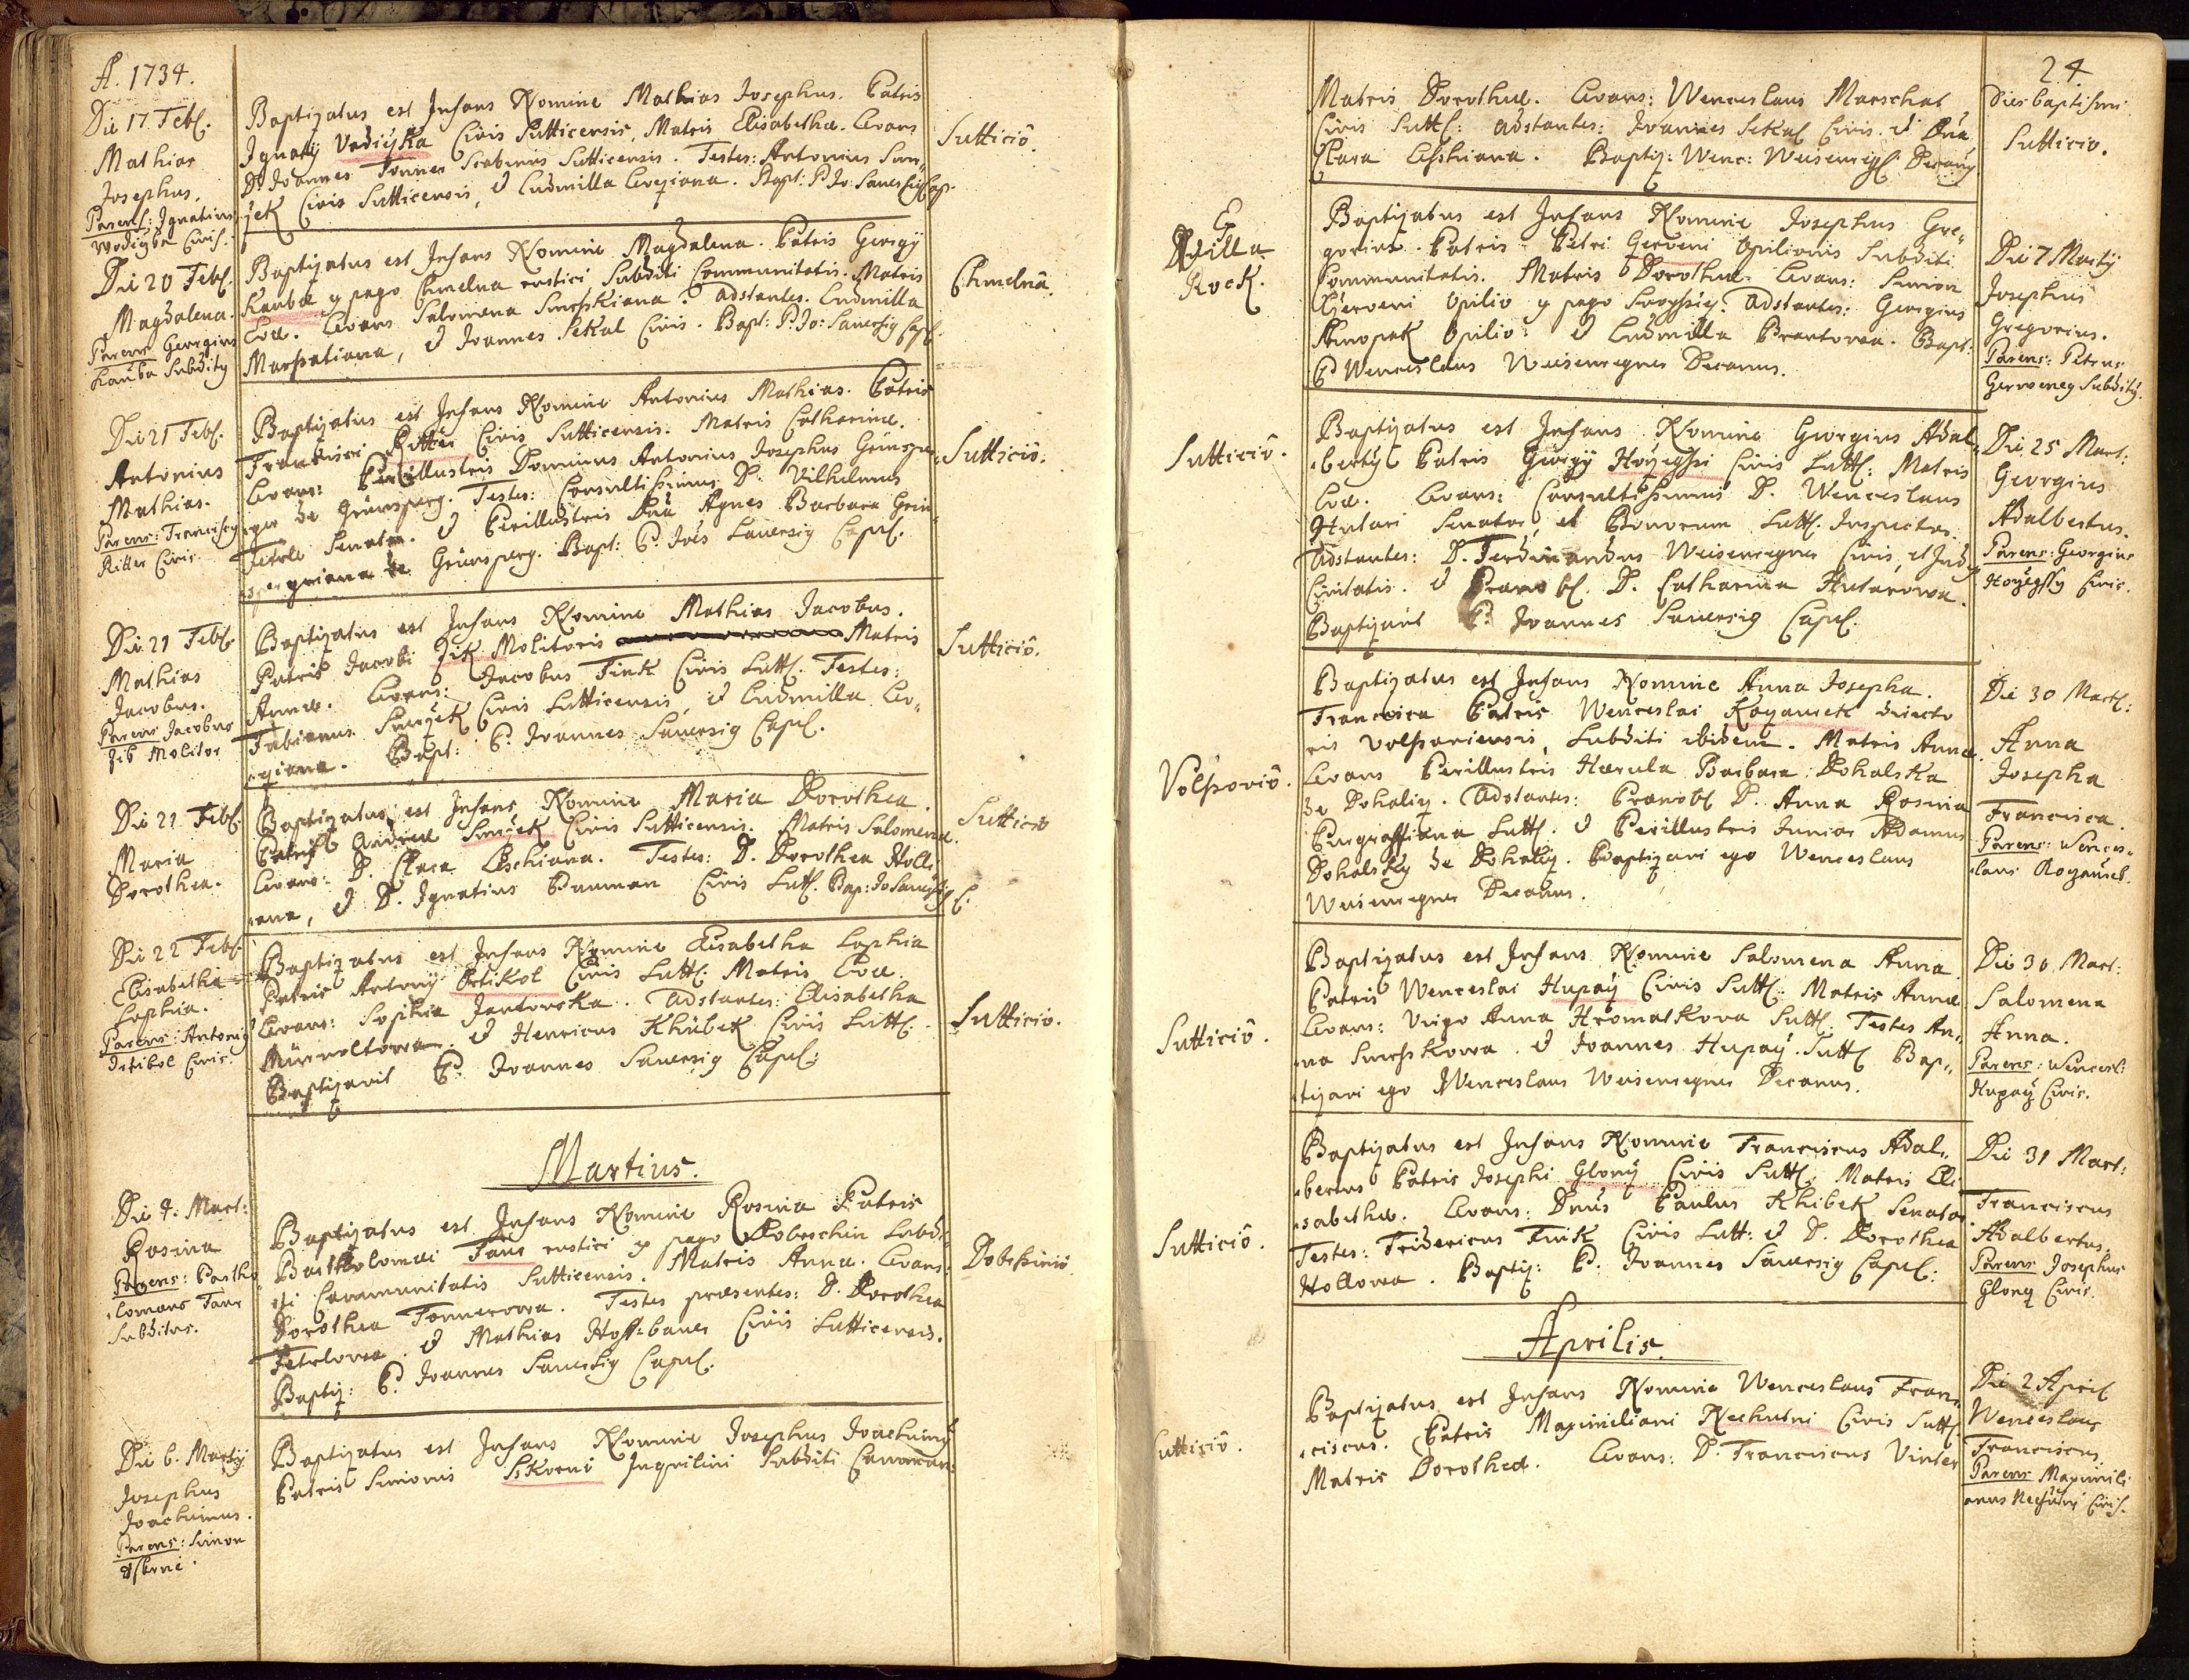 A. 1734.
Die 17. Feb.
Mathias
Josephus.
Parens: Ignatius
Wodiczka Civis.
Baptizatus est Infans Nomine Mathias Josephus. Patris
Ignatÿ Vodiczka Civis Sutticensis, Matris Elisabethæ. Levans
D. Joannes Tonner Scabinus Sutticensis. Testes: Antonius Smr„
zek Civis Sutticensis, et Ludmilla
Sutticiô.
Die 20 Feb.
Magdalena.
Parens Georgius
Kauba Subdity
Baptizatus est Infans Nomine Magdalena. Patris Georgÿ
Kaubæ ex pago Chmelna rustici Subditi Communitatis. Matris
Evæ. Levans Salomena Smrsskiana. Adstantes. Ludmilla
Marssatiana, et Joannes Sekal Civis. Bapt: P. Jo: Sauersig Capl.
Chmelnâ.
Die 21 Feb.
Antonius
Mathias.
Parens: Franciscus
Ritter Civis
Baptizatus est Infans Nomine Antonius Mathias. Patris
Francisci Ritter Civis Sutticensis. Matris Catharinæ.
Levans: Perillustris Dominus Antonius Josephus
de Grünsperg. Testes: Consultissimus D. Vilhelmus
Tetrle Senator. et Perillustris Dña Agnes Barbara Grin„
de Grünsperg. Bapt: P. Joës Sauersig Capl.
Sutticiô.
Die 21 Feb.
Mathias
Jacobus.
Parens Jacobus
Molitor
Baptizatus est Infans Nomine Mathias Jacobus.
Patris Jacobi Zik Molitoris Matris
Annæ. Levans: Jacobus Fink Civis Sutt. Testes:
Fabianus Smrzek Civis Sutticensis, et Ludmilla
Bapt: P. Joannes Sauersig Capl.
Sutticiô.
Die 21 Feb.
Maria
Dorothea.
Baptizatus est Infans Nomine Maria Dorothea.
Patris Andreæ Smrzek Civis Sutticensis. Matris Salomenæ.
Levans: D. Clara Testes: D. Dorothea Holli
ana, et D. Ignatius Pauman Civis Sutt. Bap: Jo Sauersig C.
Sutticiô
Die 22 Feb.
Elisabetha
Sophia.
Parens: Antonÿ
Civis.
Baptizatus est Infans Nomine Elisabetha Sophia
Patris Antonÿ Civis Sutt. Matris Evæ.
Levans: Sophia Adstantes: Elisabetha
et Henricus Khübek Civis Sutt.
Baptizavit P. Joannes Sauersig Capl:
Sutticiô.
Martius.
Die 4. Mart:
Rosina
Parens: Bartho„
lomæus Faur
Subditus.
Baptizatus est Infans Nomine Rosina Patris
Bartholomæi Faur rustici ex pago Doberschin Subdi„
ti Communitatis Sutticensis. Matris Anna. Levans:
Dorothea Tonnerowa. Testes præsentes: D. Dorothea
Tetrlowa. et Mathias Hoff-bauer Civis Sutticensis.
Baptiz: P. Joannes Sauersig Capl.
Dobrssiniô
Die 6. Martÿ
Josephus
Joachimus.
Parens: Simon
Baptizatus est Infans Nomine Josephus Joachimus
Patris Simonis Sskorni Inquilini Subditi Communi:
24
Matris Dorotheæ. Levans: Wenceslaus Marschat
Civis Sutt: adstantes: Joannes Sekal Civis et Dña
Clara Baptiz: Wenc: Weisenregner Decanus
Dies baptismi
Sutticiô.
E
Villa
Rock.
Baptizatus est Infans Nomine Josephus Gre„
gorius. Patris Petri Gerveni Opilionis Subditi
Communitatis. Matris Dorotheæ. Levans: Simon
Gerveni Opilio ex pago Adstantes: Georgius
Knopak Opilio et Ludmilla Bapt:
P Wenceslaus Weisenregner Decanus.
Die 7 Martÿ
Josephus
Gregorius.
Parens: Petrus
Gerweney Subdity.
Sutticiô.
Baptizatus est Infans Nomine Georgius Adal„
bertÿ Patris Georgÿ Civis Sutt: Matris
Evæ. Levans: Consultissimus D. Wenceslaus
Hutari Senator, et Bonorum Sutt. Inspector.
Adstantes: D. Ferdinandus Weisenregner Civis, et
Civitatis. et D. Catharina Hutarowa.
Baptizavit P. Joannes Sauersig Capl.
Die 25 Mart:
Georgius
Adalbertus.
Parens: Georgius
Civis.
Volssoviô.
Baptizatus est Infans Nomine Anna Josepha.
Francisca Patris Wenceslai Kozaurek directo
ris Volssoviensis, Subditi ibidem. Matris Annæ.
Levans Perillustris Herula Barbara Dohalska
de Dohaliz. Adstantes: Prænob. D. Anna Rosina
Burgraffiana Sutt. et Perillustris Junior Adamus
Dohalsky de Dohaliz. Baptizavi ego Wenceslaus
Weisenregner Decanus.
Die 30 Mart:
Anna
Josepha
Francisca.
Parens: Wences„
laus
Sutticiô.
Baptizatus est Infans Nomine Salomena Anna
Patris Wenceslai Hupaÿ Civis Sutt: Matris Annæ
Levans: Virgo Anna Hromatkova Sutt. Testes An„
na Smrsskowa. et Joannes Hupaÿ. Sutt Bap„
tizavi ego Wenceslaus Weisenregner Decanus.
Die 30 Mart:
Salomena
Anna.
Parens: Wencesl:
Hupaÿ Civis.
Sutticiô.
Baptizatus est Infans Nomine Franciscus Adal„
bertus Patris Josephi Glonÿ Civis Sutt. Matris Eli
sabethæ. Levans: Dnus Paulus Khibek Senator
Testes: Fridericus Fink Civis Sutt: et D. Dorothea
Hollowa. Baptiz: P. Joannes Sauersig Capl:
Die 31 Mart:
Franciscus
Adalbertus.
Parens Josephus
Glony Civis.
Aprilis.
Sutticiô.
Baptizatus est Infans Nomine Wenceslaus Fran„
ciscus. Patris Maximiliani Nechutni Civis Sutt
Matris Dorotheæ. Levans: D. Franciscus Vinter
Die 2 April
Wenceslaus
Franciscus
Parens Maximili
anus Nechutni Civis.